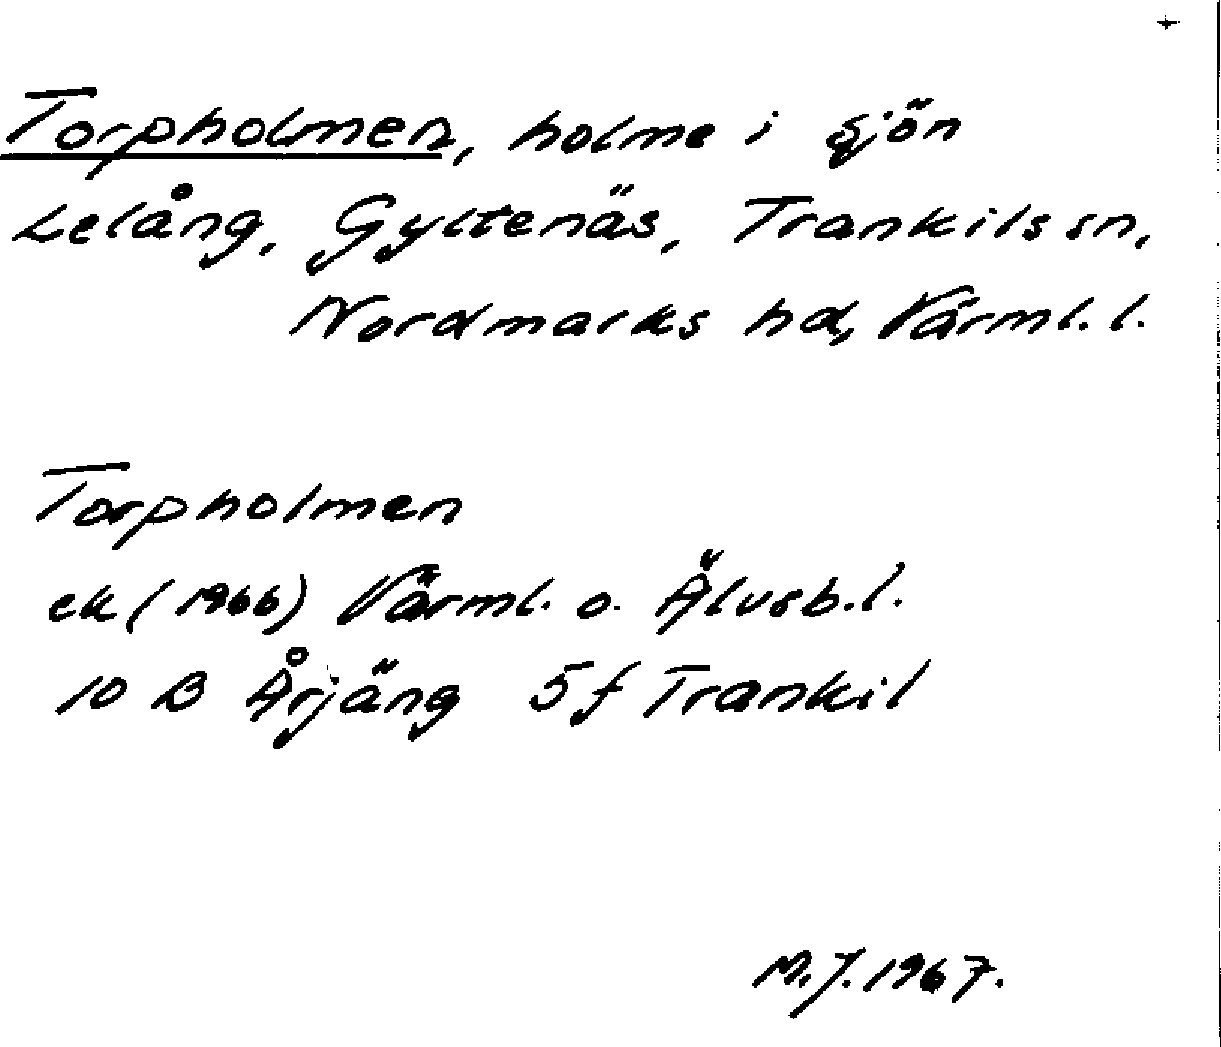 Torpholmen, holme i sjön
Lelång, Gyltenäs, Trankils sn,
Nordmarks hd, Värml. l.
Torpholmen
ek (1966) Värml. o. Älvsb. l.
10 B Årjäng 5 f Trankil
M.J. 1967.